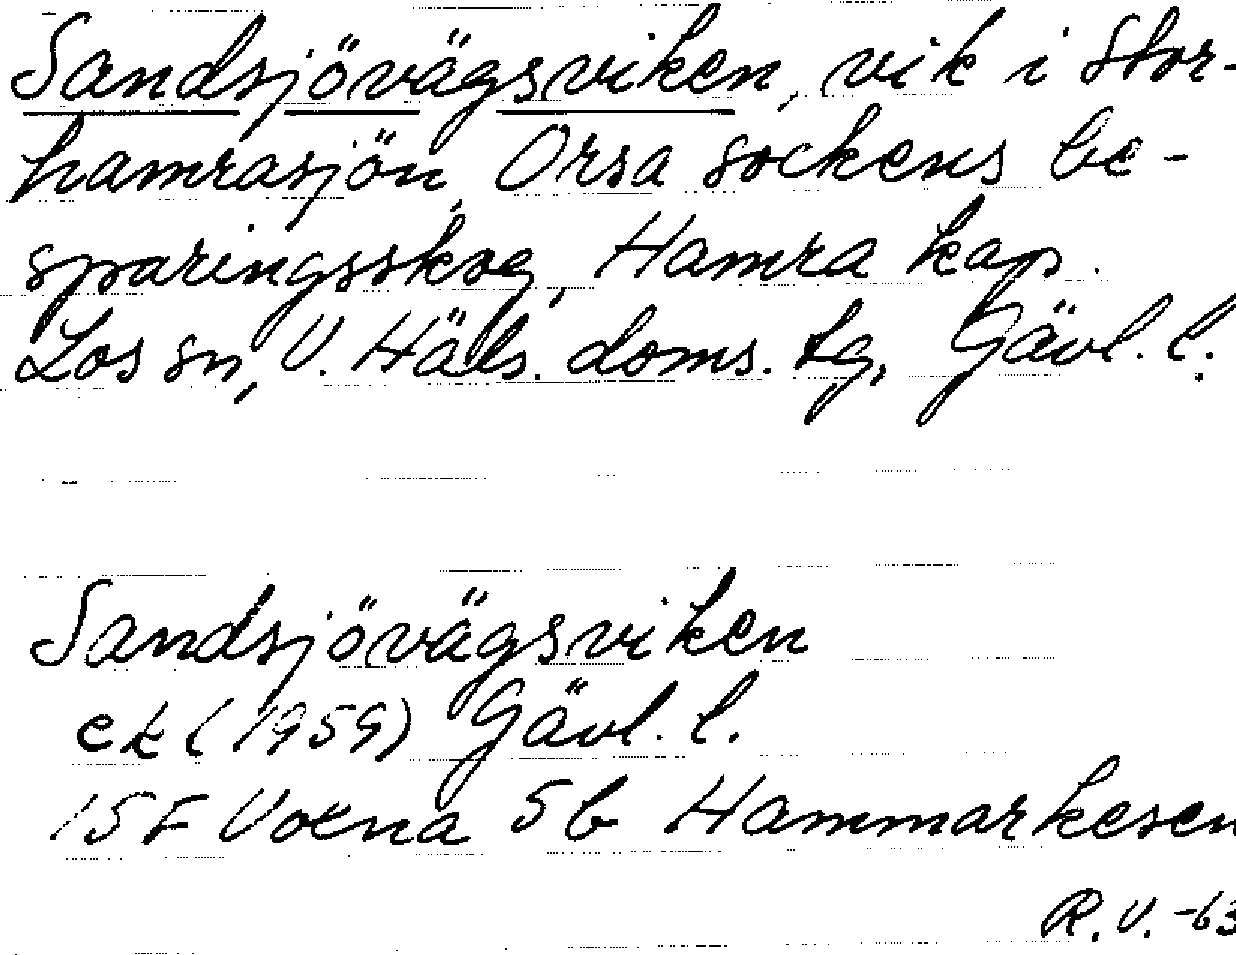 Sandsjövägsviken, vik i Stor-
hamrasjön, Orsa sockens be-
sparingsskog, Hamra kap.
Los sn, V. Häls. doms. tg, Gävl. l.
Sandsjövägsviken
ek (1959) Gävl. l.
15F Voxna 5b Hammarkesen
R.V. -63